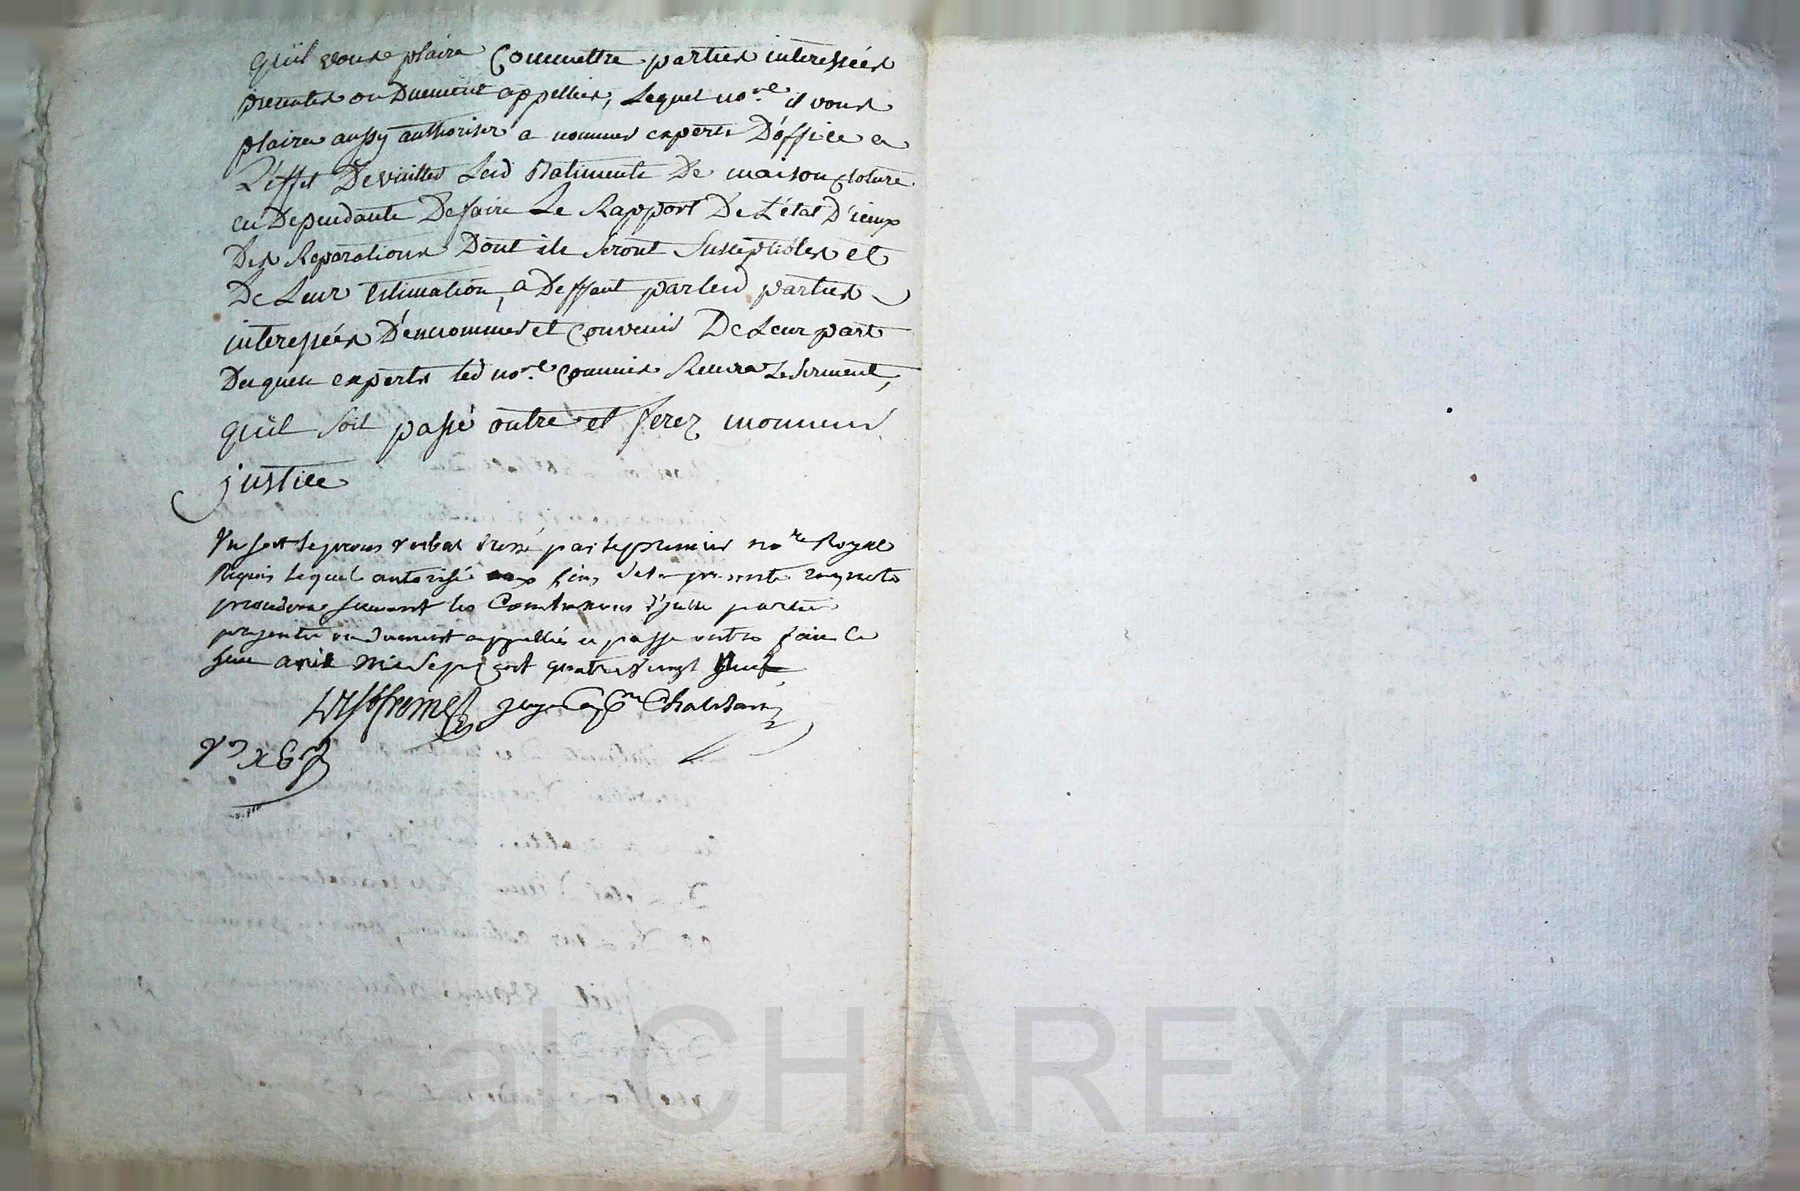 qu'il vous plaira Commettre parties interessées
presentes ou Duement appellées, Lequel no.re il vous
plaira aussy authoriser a nommer experts D'office a
L'effet De visitter Lesd Batiments De maison cloture
en Dependants De faire Le Rapport De L'état D'iceux
Des Reparations Dont ils seront Susceptibles et
De Leur Estimation, a Deffaut par lesd parties
interessées D'en nommer et Convenir De Leur part
Desquels experts led no.re Commis Recevra Le serment,
qu'il soit passé outre et ferez
justice
Vu soit le procès verbal dressé par le premier no.re Royal
Requis Lequel autorisé aux fins de la presente requete
procedera suivant les
presentes ou duement appellées et passé outre fait Ce
avril Mil Sept Cent quatre vingt neuf
juge
Pascal CHAREYRON